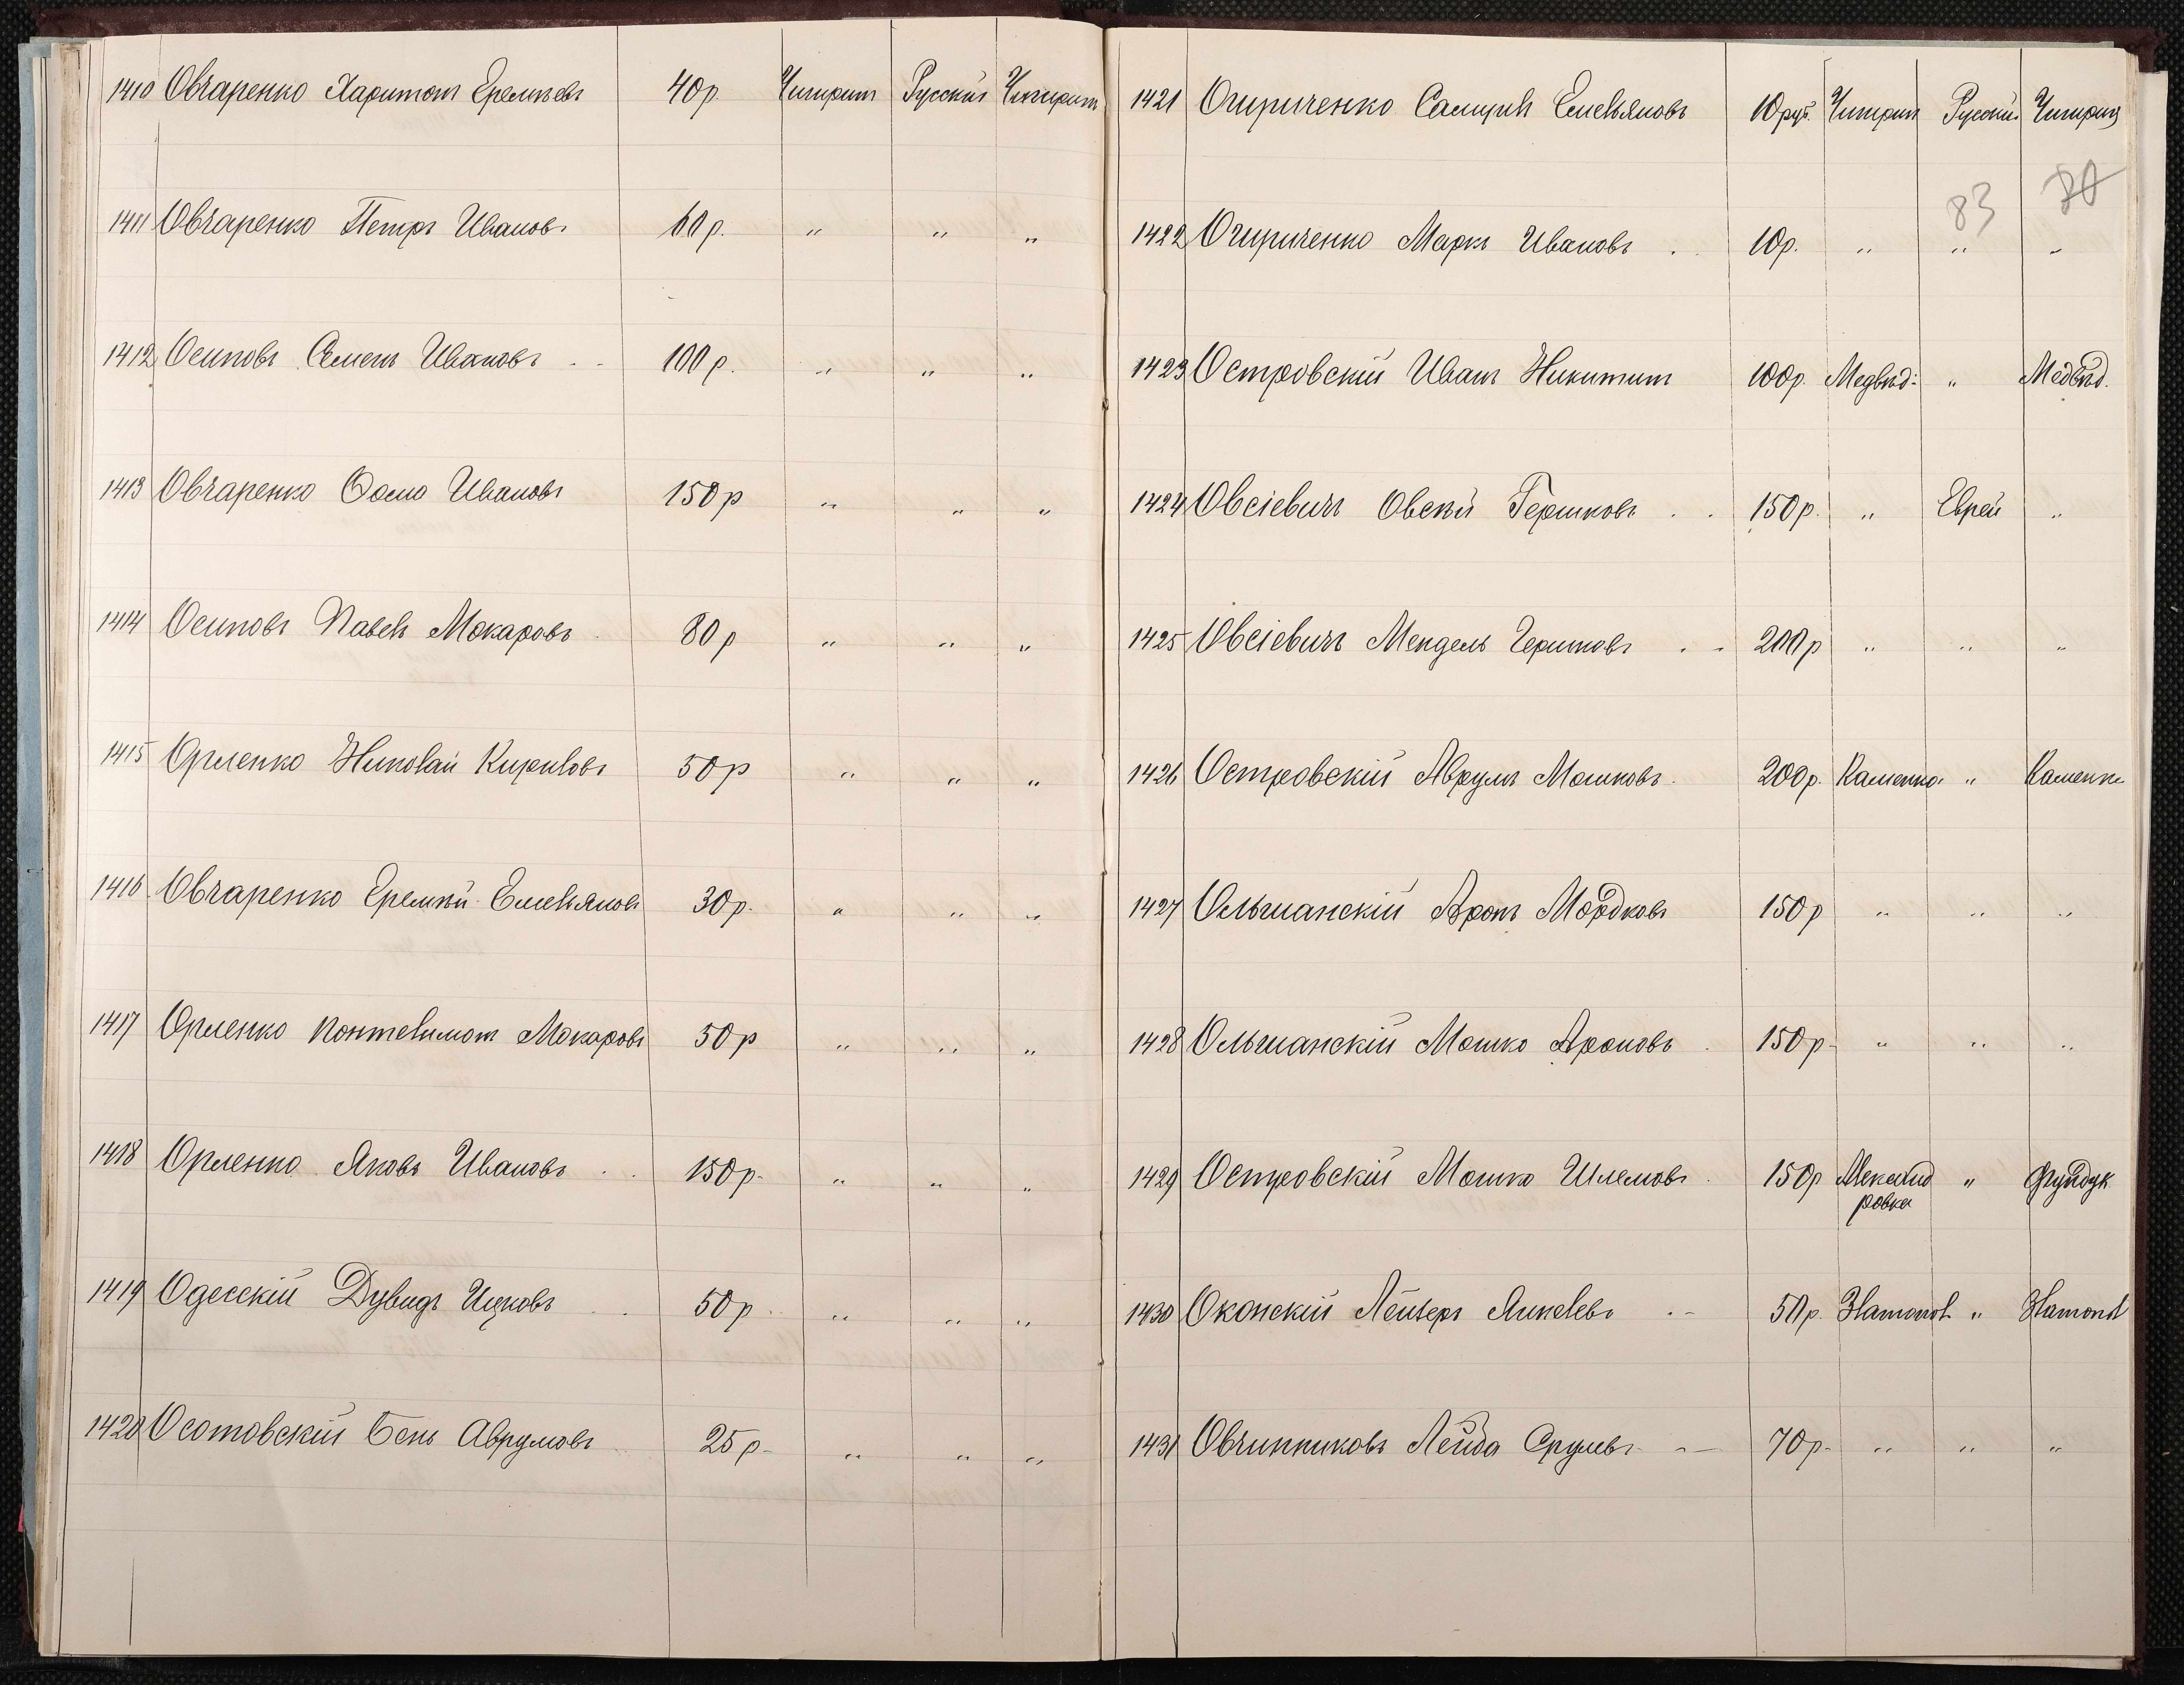 1410 Овчаренко Харитонъ Еремѣевъ 40р. Чигирин Русскій Чигирин
1411 Овчаренко Петръ Ивановъ 60р. " " "
1412 Осиповъ Семенъ Ивановъ 100р. " " "
1413 Овчаренко Ѳома Ивановъ 150р " " "
1414 Осиповъ Павелъ Макаровъ 80р " " "
1415 Орленко Николай Кириловъ 50р " " "
1416 Овчаренко Еремѣй Емельяновъ 30р. " " "
1417 Орленко Понтелимонъ Макаровъ 50р " " "
1418 Орленко Яковъ Ивановъ 150р. " " "
1419 Одесскій Дувидъ Ицковъ 50р " " "
1420 Осотовскій Бень Аврумовъ 25р. " " "
1421 Огириченко Самуилъ Емельяновъ 10руб. Чигирин Русскій Чигирин
83 80
1422 Огириченко Маркъ Ивановъ 10р. " " "
1423 Островскій Иванъ Никитинъ 100р. Медвѣд: " Медвѣд.
1424 Овсіевичъ Овсѣй Гершковъ 150р. " Еврей "
1425 Овсіевичъ Мендель Гершковъ 200р " " "
1426 Островскій Аврумъ Мошковъ 200р. Каменка " Каменк
1427 Ольшанскій Аронъ Мордковъ 150р " " "
1428 Ольшанскій Мошко Ароновъ 150р. " " "
1429 Островскій Мошко Шлемовъ 150р Александ "
ровка
1430 Оконскій Лейзеръ Янкелевъ 50р. Златопол " Златопол
1431 Овчинниковъ Лейба Срулевъ 70р. " " "